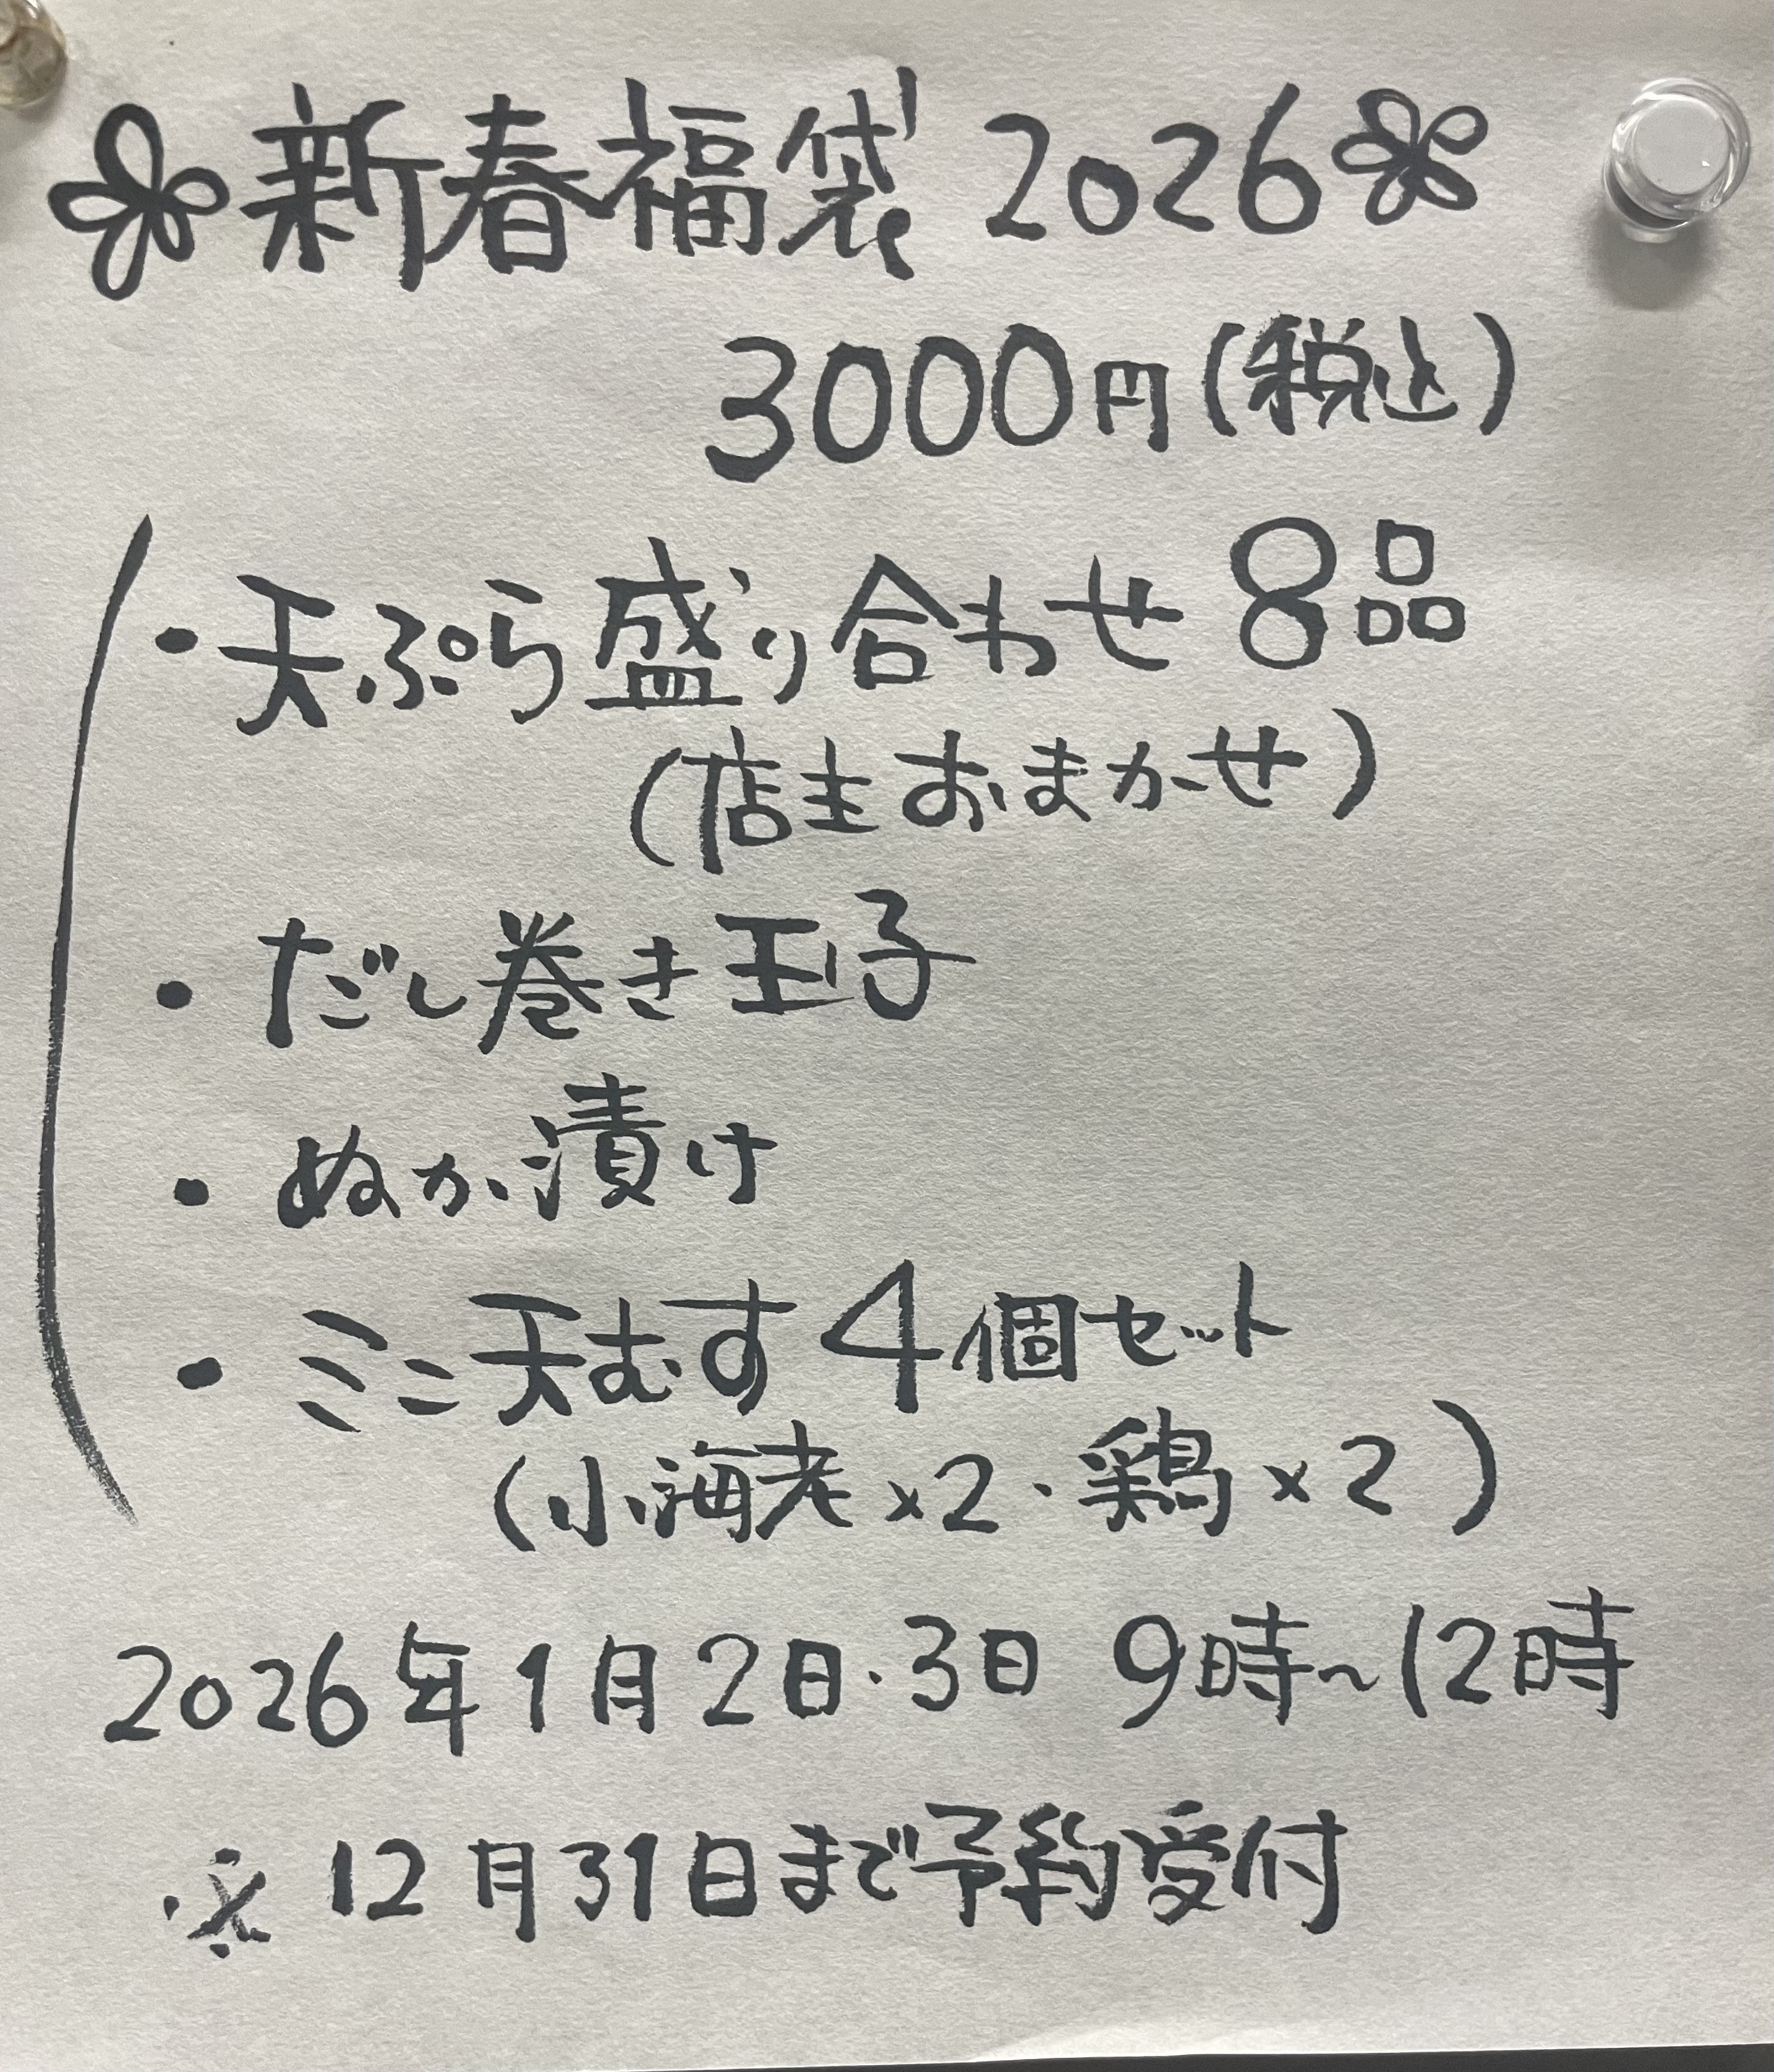 新春福袋 2026
3000円(税込)
・天ぷら盛り合わせ 8品
(店主おまかせ)
・だし巻き玉子
・ぬか漬け
・ミニ天むす 4個セット
(小海老×2・鶏×2)
2026年1月2日・3日 9時〜12時
※ 12月31日まで予約受付